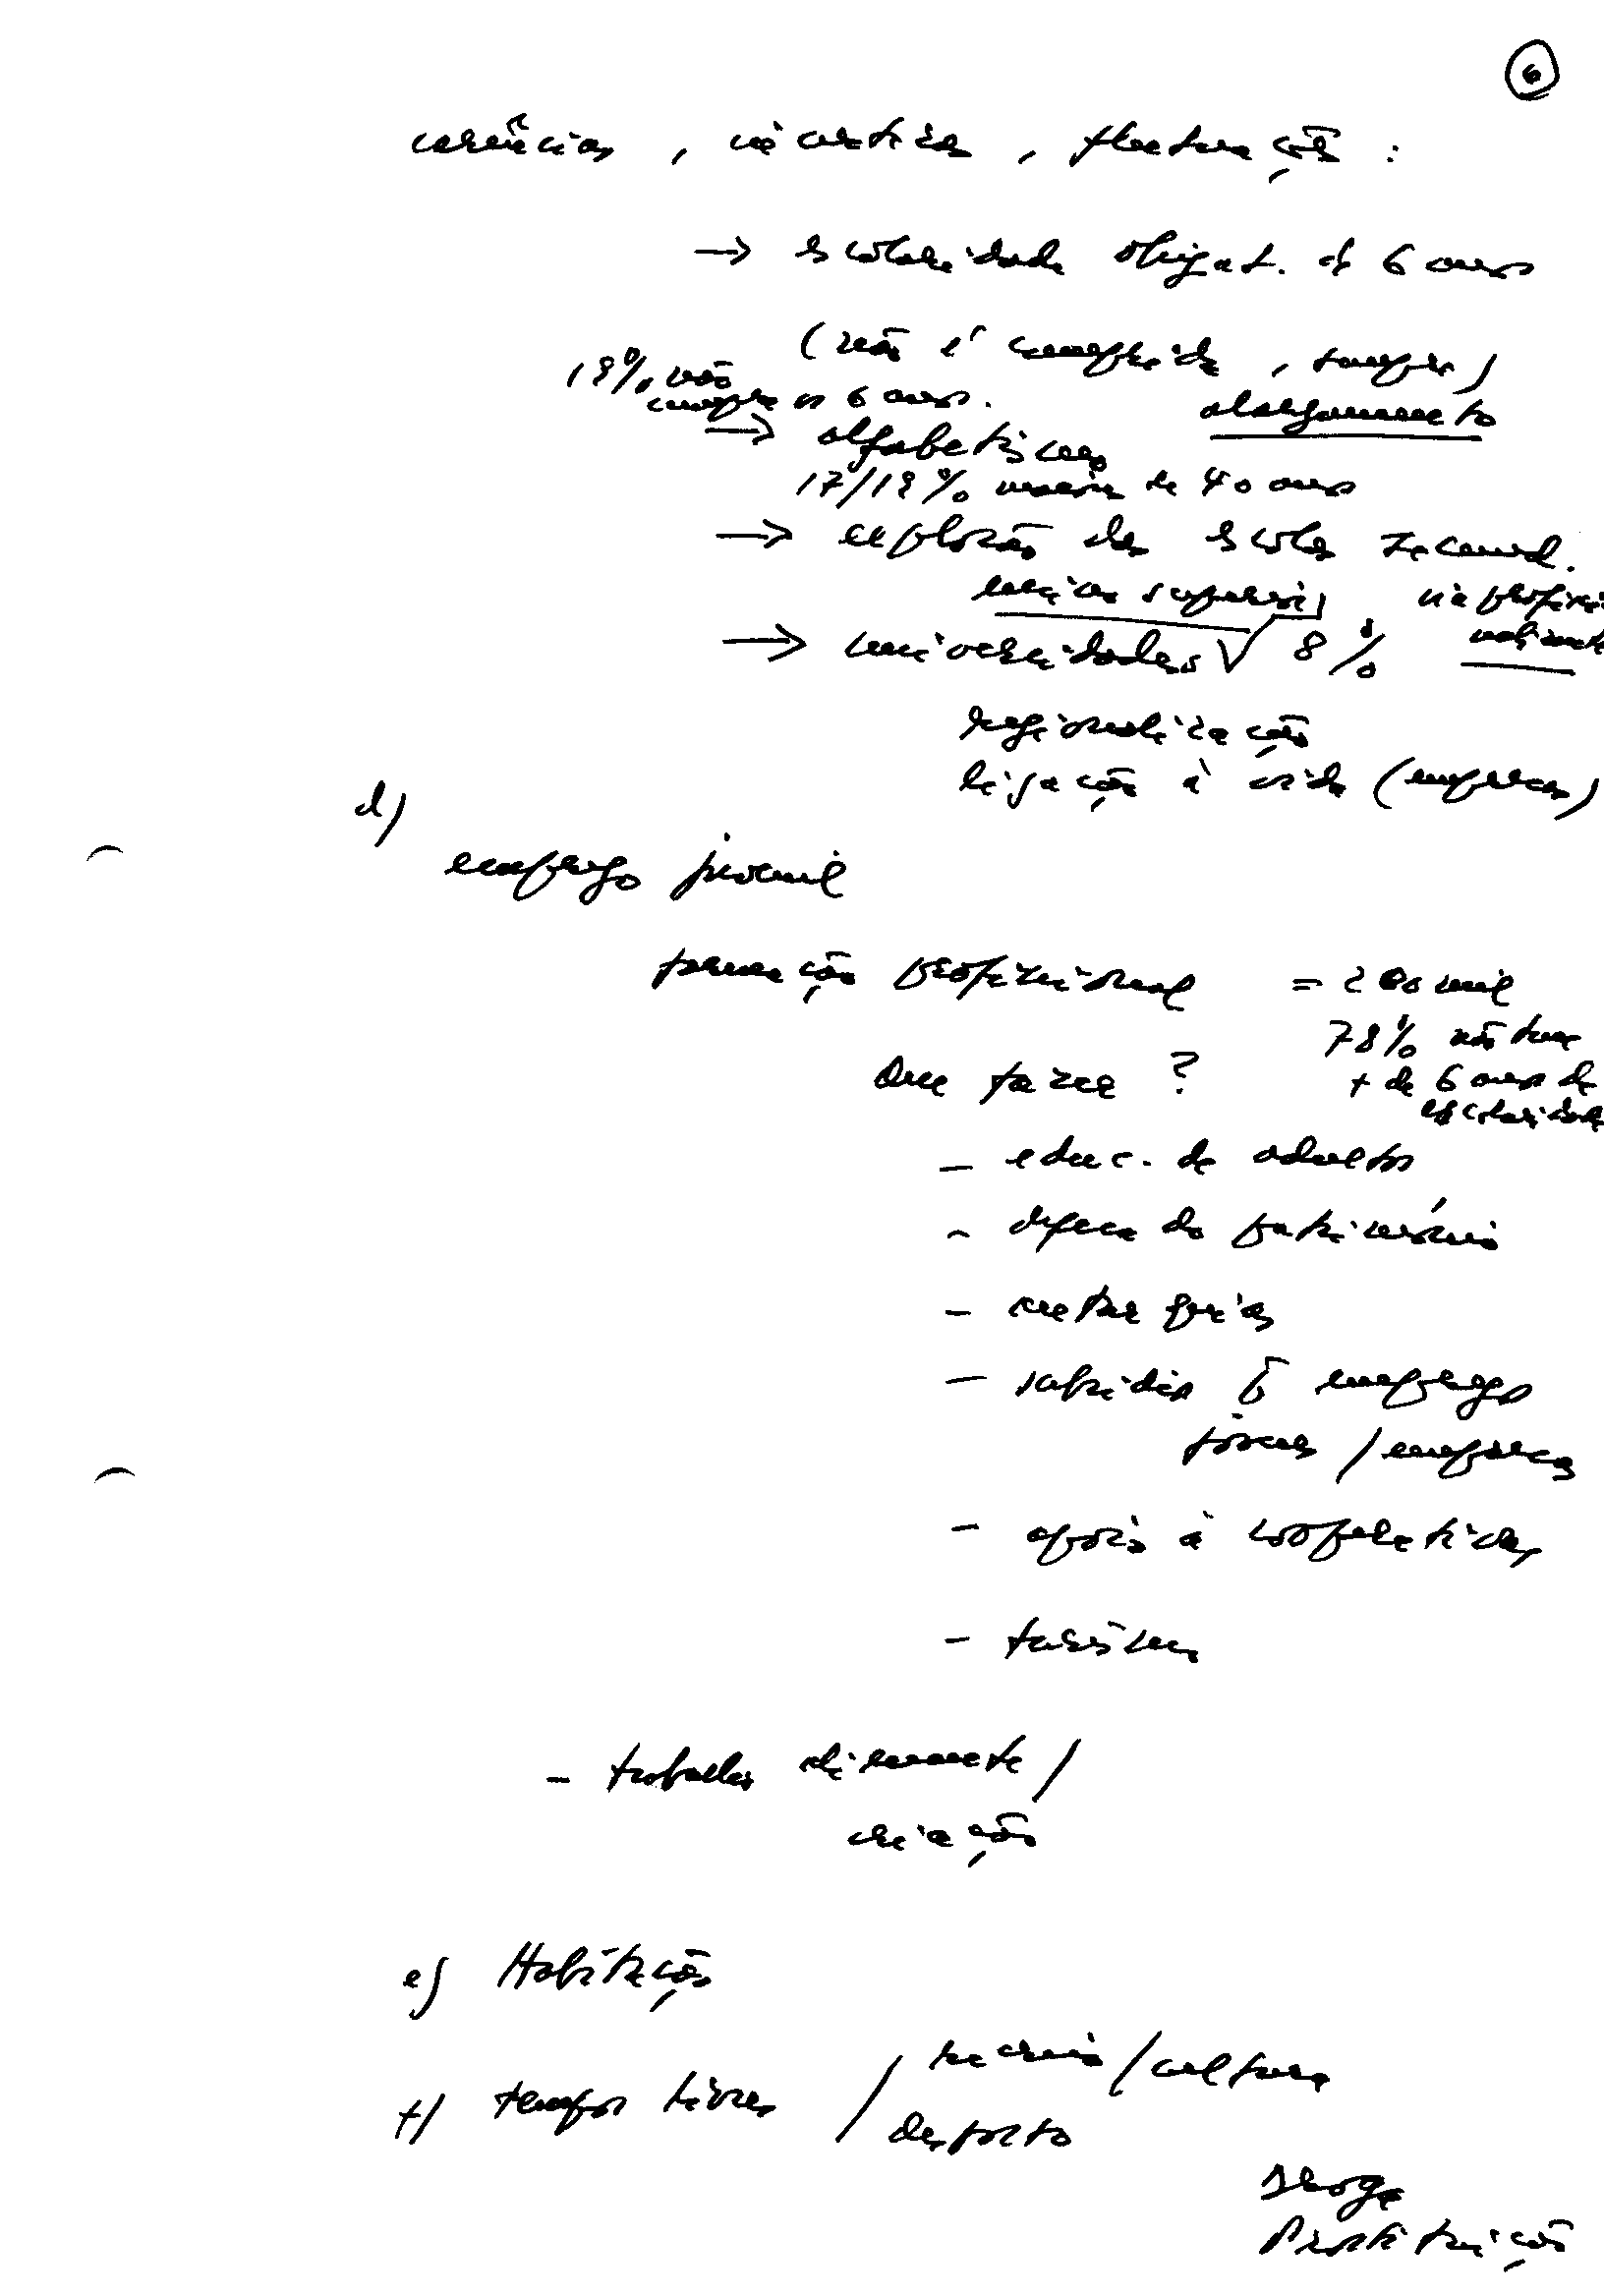 6
carências, incertezas, flutuações :
→ escolaridade obrigat. de 6 anos
(não é cumprida, sempre)
18% não
cumpre os 6 anos.
alargamento
→ alfabetismo
17/18% maior de 40 anos
→ explosão das escolas secund.
ensino superior
via profissi
→ universidades √ 8%
regionalização
ligação à vida (empresas)
d)
emprego juvenil
formação profissional = 200 mil
78% não tem
Que fazer ?
+ de 6 anos de
escolaridade
- educ. de adultos
- defesa do património
-
- subsídios emprego
jovens / empresas
- apoio à cooperativas
- turismo
- trabalho /
criação
e) Habitação
f) tempos livres / recreio / cultura
desporto
Droga
Prostituição